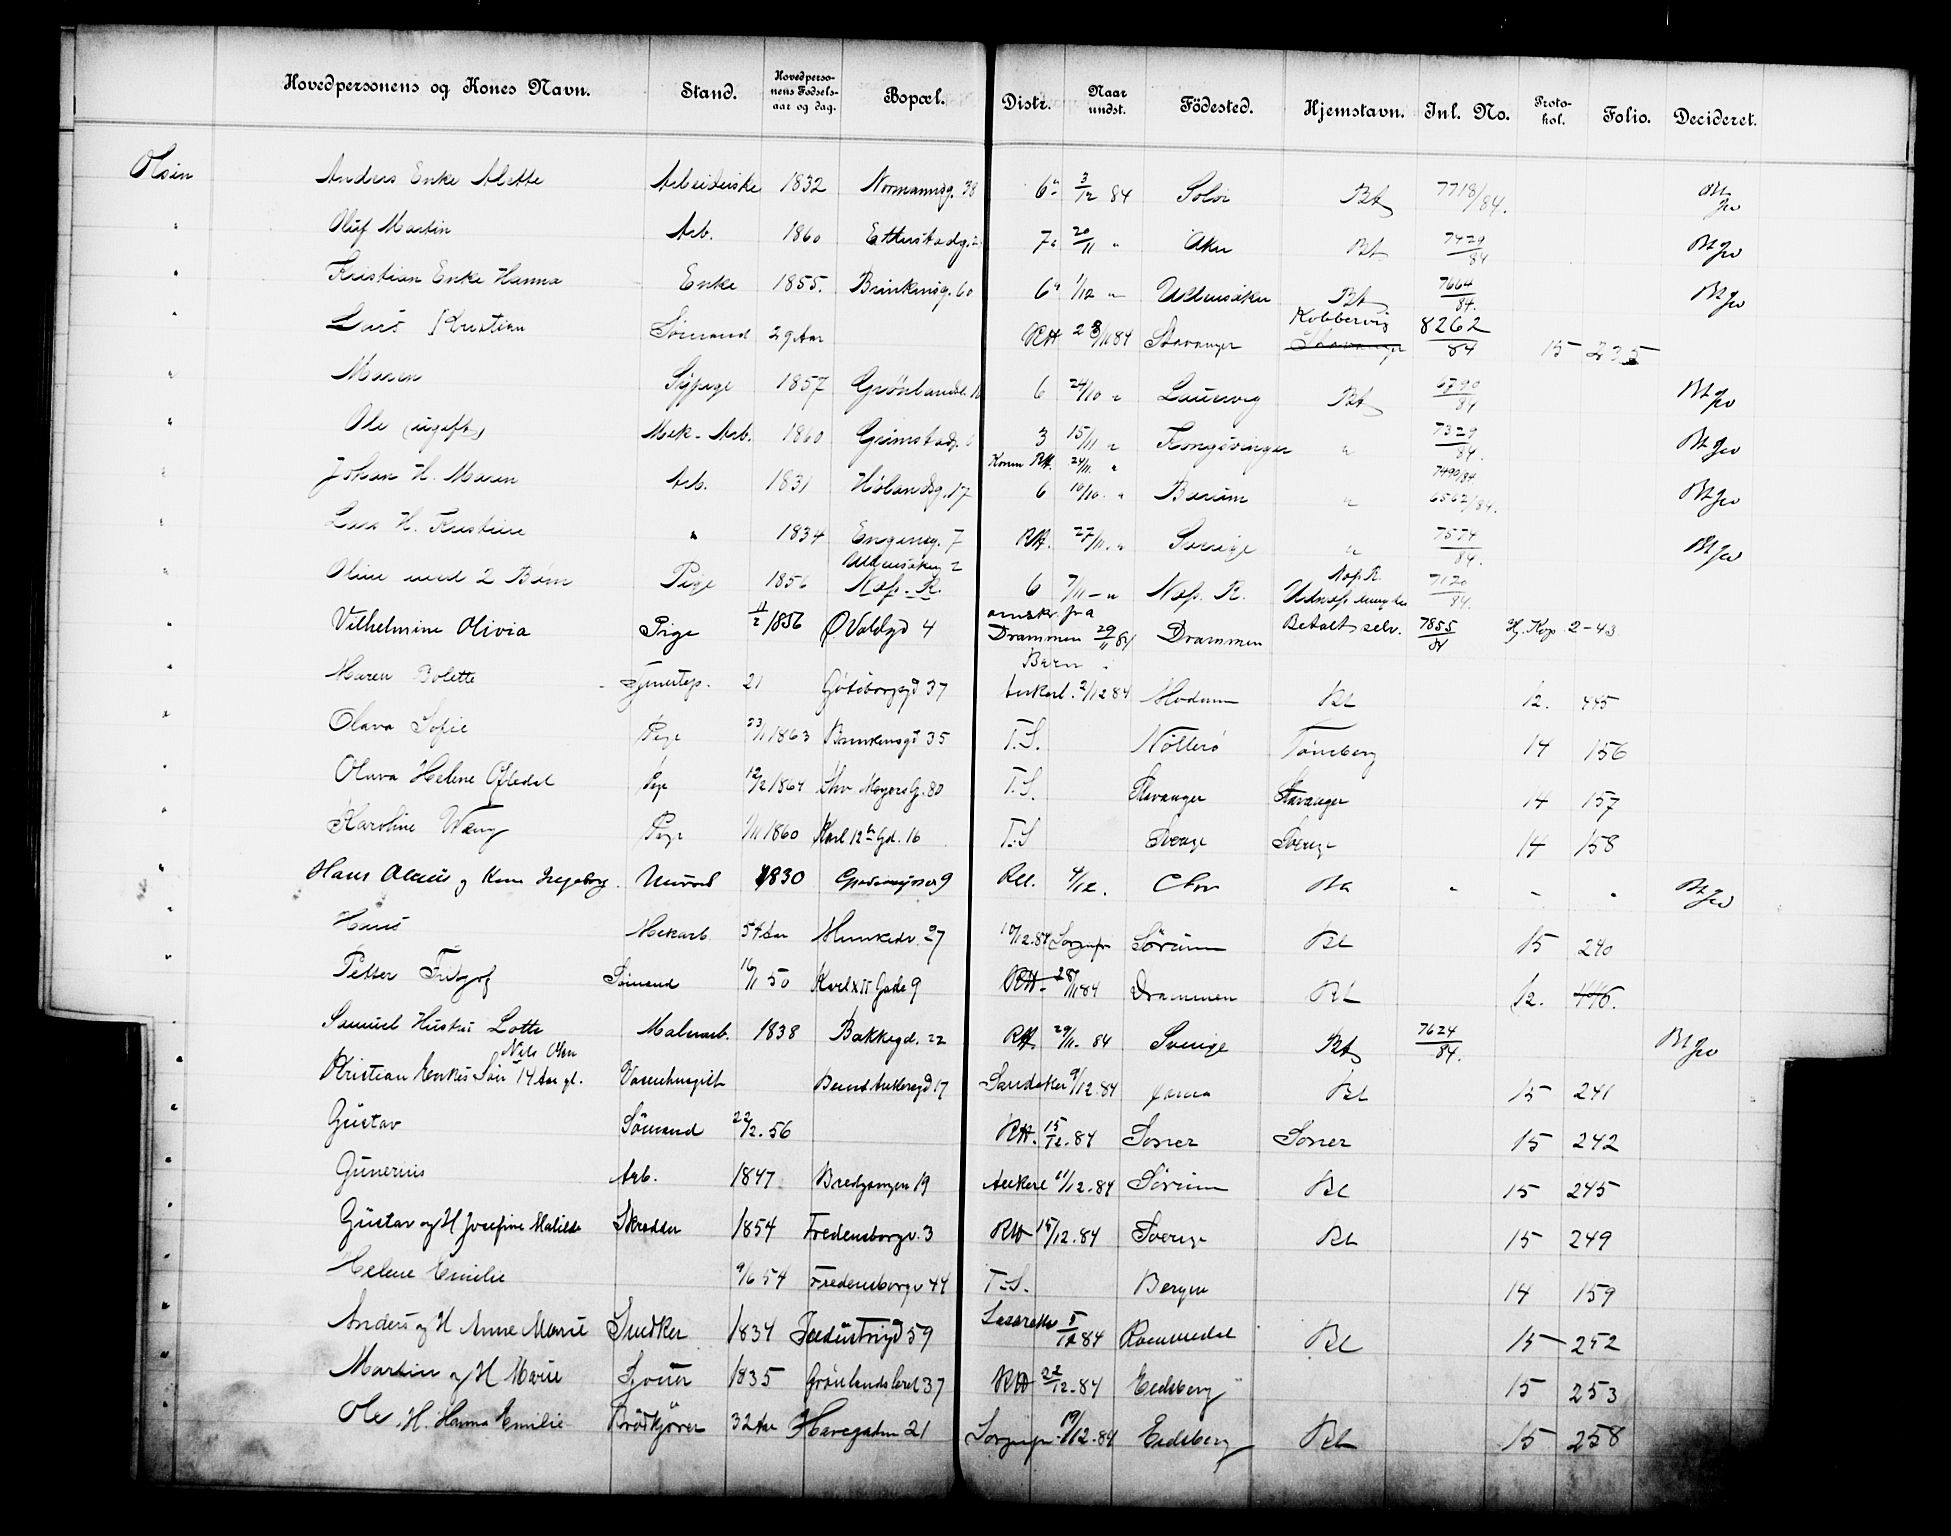 Hovedpersonens og Kones Navn. Stand. Hovedpersonens Fødselsaar og dag. Bopæl. Distr. Naar undst. Födested. Hjemstavn. Inl. No. Protokol. Folio. Decideret.
Olsen Anders Enke Alette Arbeiderske 1832 Normannsg. 38 6 3/12 84 Solör Bt 7718/84.
" Oluf Martin Arb. 1860 Etterstadg. 7 20/11 " Aker Bt 7429/84
" Kristian Enke Hanna Enke 1855. Brinkensg. 60 6 1/12 " Ullensaker Bt 7664/84.
" Lars Kristian Sømand 29 Aar RH 28/11 84 Stavanger Kobbervig Stavanger 8262/84 15 235
" Maren Sypige 1857 Grønlandsl. 6 24/10 " Laurvig Bt 6790/84
" Ole (ugift) Mek. Arb. 1860 Grimstadg. 3 15/11 " Kongsvinger " 7329/84.
" Johan H. Maren Arb. 1831 Hølandsg. 17 Komm RH. 24/11. " 6 10/10. " Bærum " 7490/84 6562/84.
" Lars H. Kristine " 1834 Engensg. 7 RH. 27/11. " Sverige " 7574/84.
" Oline med 2 Börn Pige 1856 Ullensakerg 2 Næs. R. 6 7/11 - " Næs. R. Næs R. 7120/84.
" Vilhelmine Olivia Pige 11/2 1856 Ø Voldgd 4 omskr. fra Drammen 29/11 84 Drammen Betalt selv. 7855/84 Hj. Kop. 2-43
" Maren Bolette Tjenestep. 21 Göteborggd 37 Barn Ankerl. 2/12 84 Modum Bt 12. 445
" Olava Sofie Pige 23/11 1863 Brinkensgd 35 T.S. Nötterö Tönsberg 14 156
" Olava Helene Oftedal Pige 12/2 1864 Thv Meyers G. 80 T.S. Stavanger Stavanger 14 157
" Karoline Wang Pige 1/11 1860 Karl 12te Gd. 16 T.S Sverige Sverige 14 158
" Hans Olaus og Kone Ingeborg. Murard 1830 9 RH. 4/12. Bt " " "
" Hans Mekarb 54 Aar Munkedv. 27 10/12.84 Sorgenfr Sørum Bt 15 240
" Petter Fritjof Sømand 16/11 50 Karl XII Gade 9 RH. 28/11 84 Drammen Bt 12. 446.
" Samuel Hustru Lotte Malerarb. 1838 Bakkegd. 22 RH. 29/11. 84 Sverige Bt 7624/84.
" Nils Olsen
Kristian Enkes Søn 14 Aar gl. Bernt Ankersgd 17 Sandaker 9/12.84 Bt 15 241
" Gustav Sömand 22/2.56 RH. 15/12.84 Soner Soner 15 242
" Gunerius Arb. 1847 Bredgangen 19 Ankerl 11/12.84 Sörum Bt 15 245
" Gustav og H Josefine Matilde Skrædder 1854 Fredensborgv. 3 RH 15/12.84 Sverige Bt 15 249
" Helene Emilie 9/6 54 Fredensborgv 44 T.S. Bergen 14 159
" Anders og H Anne Marie Snedker 1834 Industrigd 59 Lazareth 5/12 84 Romedal Bt 15 252
" Martin og H Marie Sjouer 1835 Grönlandsleret 37 RH 22/12.84 Eidsberg 15 253
" Ole. H. Hanna Emilie Brödkjörer 32 Aar Haregaden 21 Sorgenfr. 19/12.84 Eidsberg Bt 15 258